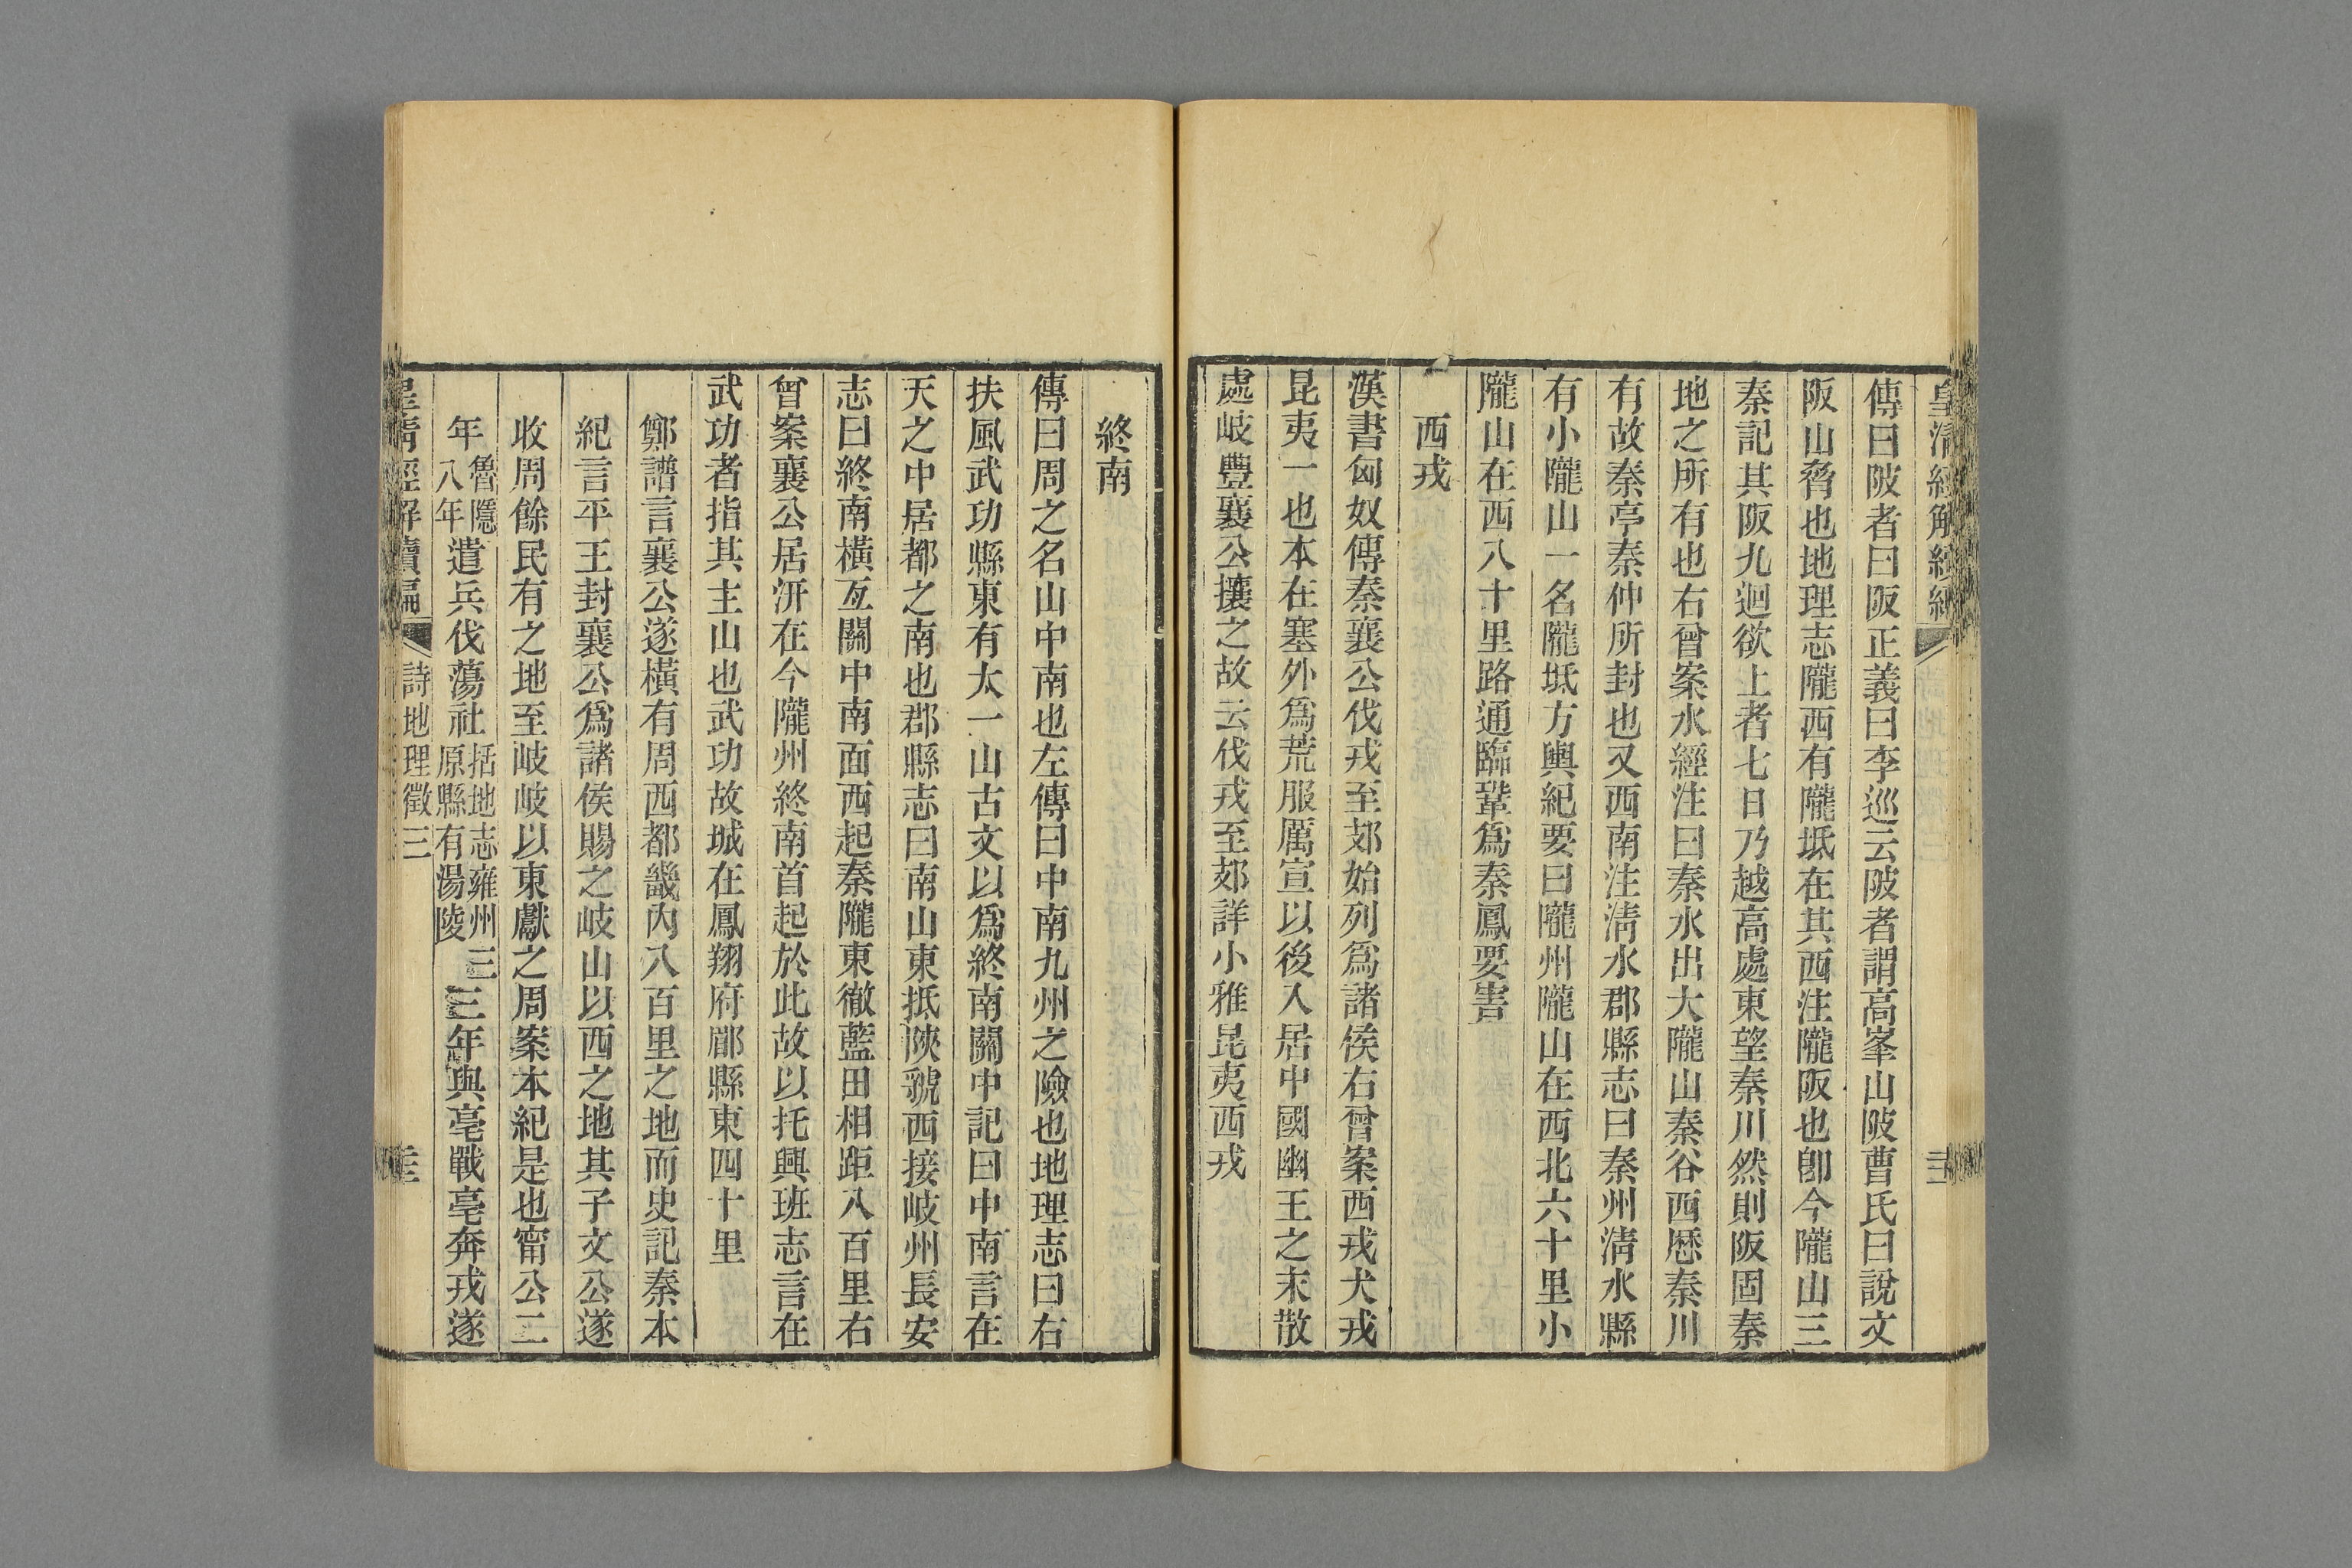 皇清經解續編
傳曰陂者曰阪正義曰李巡云陂者謂高峯山陂曹氏曰說文
阪山脅也地理志隴西有隴坻在其西注隴阪也卽今隴山三
秦記其阪九迴欲上者七日乃越高處東望秦川然則阪固秦
地之所有也右曾案水經注曰秦水出大隴山秦谷西歷秦川
有故秦亭秦仲所封也又西南注淸水郡縣志曰秦州淸水縣
有小隴山一名隴坻方輿紀要曰隴州隴山在西北六十里小
隴山在西八十里路通臨鞏爲秦鳳要害
西戎
漢書匈奴傳秦襄公伐戎至郊始列爲諸侯右曾案西戎犬戎
昆夷一也本在塞外爲荒服厲宣以後入居中國幽王之末散
處岐豐襄公攘之故云伐戎至郊詳小雅昆夷西戎
終南
傳曰周之名山中南也左傳曰中南九州之險也地理志曰右
扶風武功縣東有太一山古文以爲終南關中記曰中南言在
天之中居都之南也郡縣志曰南山東抵陝虢西接岐州長安
志曰終南橫亙關中南面西起秦隴東徹藍田相距八百里右
曾案襄公居汧在今隴州終南首起於此故以托興班志言在
武功者指其主山也武功故城在鳳翔府郿縣東四十里
鄭譜言襄公遂橫有周西都畿內八百里之地而史記秦本
紀言平王封襄公爲諸侯賜之岐山以西之地其子文公遂
收周餘民有之地至岐岐以東獻之周案本紀是也甯公二
年魯隱八年遣兵伐蕩社括地志雍州三原縣有湯陵三年與亳戰亳奔戎遂
皇淸經解續編 詩地理徵三